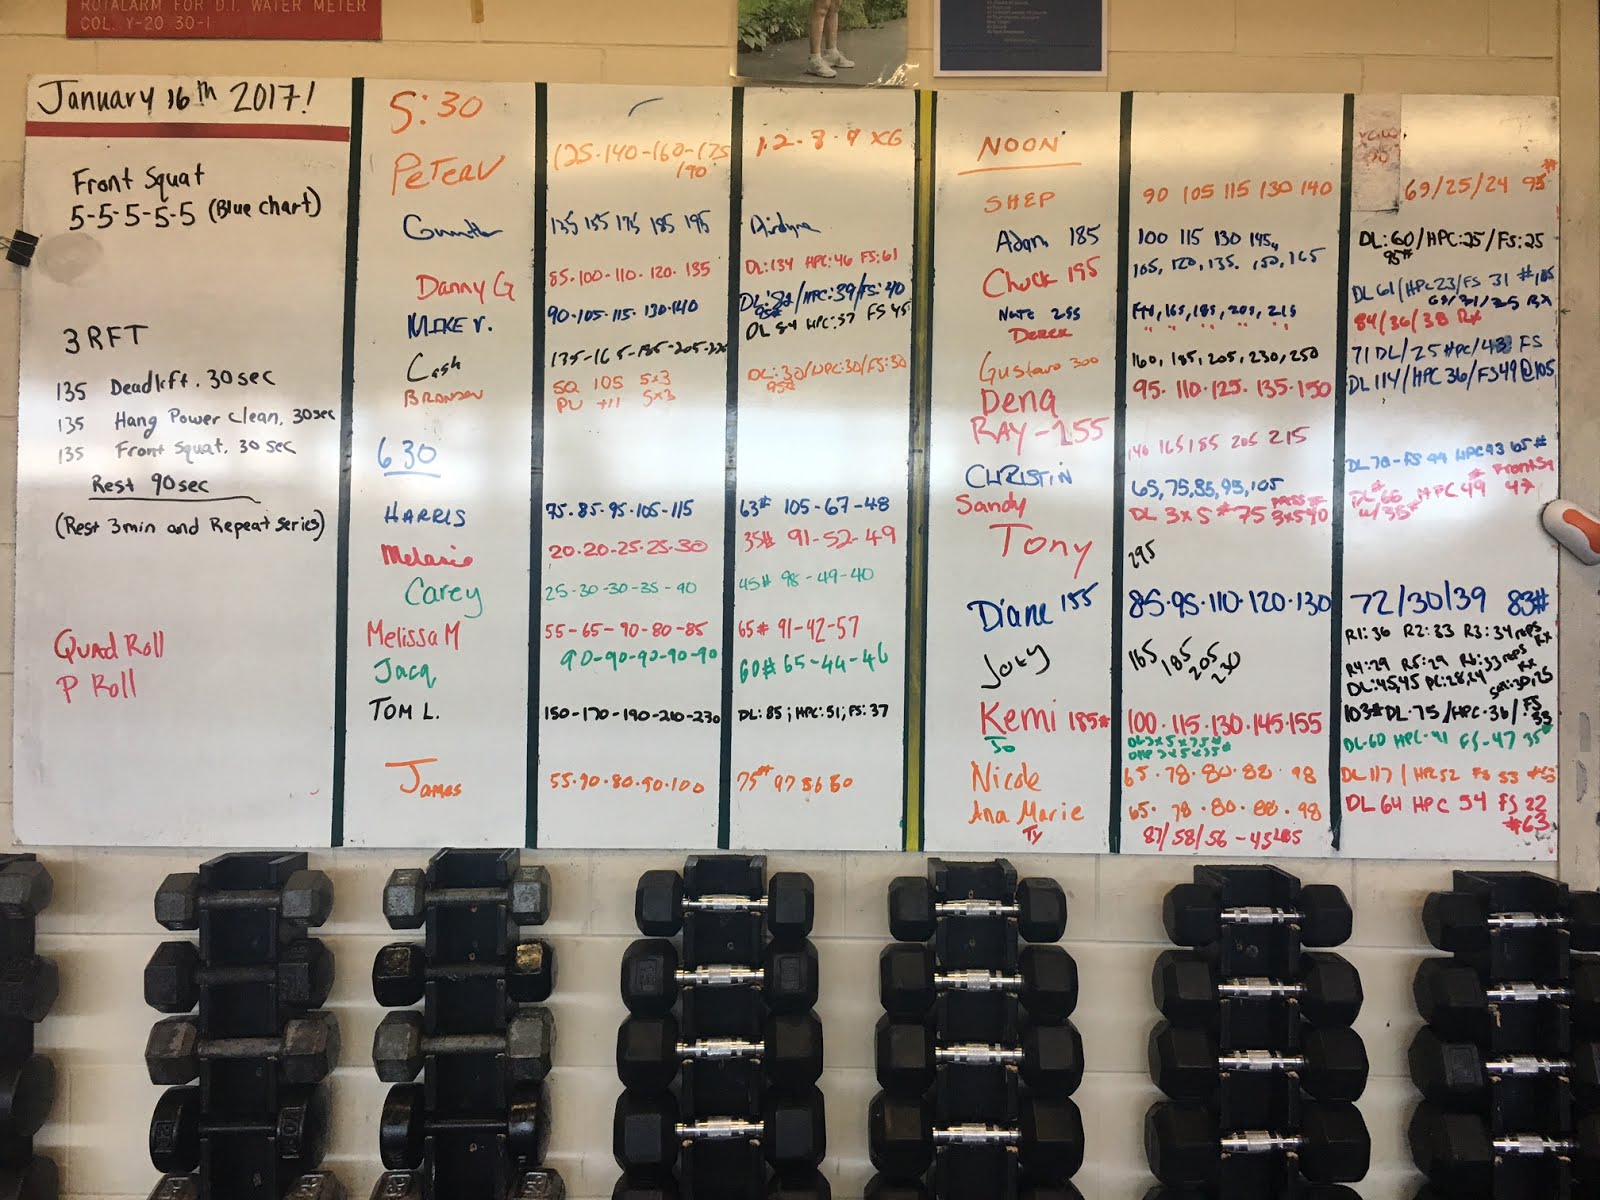 ROTALARM FOR D.I. WATER METER
COL. Y-20 30-1
January 16th 2017!
Front Squat
5-5-5-5-5 (Blue chart)
3 RFT
135 Deadlift, 30 sec
135 Hang Power Clean, 30sec
135 Front Squat, 30 sec
Rest 90sec
(Rest 3min and Repeat series)
Quad Roll
P Roll
5:30
PeTerV 125-140-160-175
190
135 155 175 185 195 Airdyne
Danny G 85-100-110-120-135 DL:134 HPC:46 FS:61
MIKE V. 90-105-115-130-140 DL:82/HPC:39/FS:40
95#
Cash DL 54 HPC:57 FS 45
BRANDON SQ 105 5x3 DL:30/HPC:30/FS:30
PU +11 5x3 95#
630
HARRIS 75-85-95-105-115 63# 105-67-48
Melanie 20-20-25-25-30 35# 91-52-49
Carey 25-30-30-35-40 45# 98-49-40
Melissa M 55-65-70-80-85 65# 91-42-57
Jacq 90-90-90-90-90 60# 65-44-46
TOM L. 150-170-190-210-230 DL:85; HPC:51; FS:37
James 55-70-80-90-100 75#
NOON
SHEP 90 105 115 130 140 69/25/24 95#
Adam 185 100 115 130 145 DL:60/HPC:25/FS:25
95#
Chuck 195 105, 120, 135, 150, 165 DL 61/HPC 23/FS 31 #185
Nate 255 165, 185, 205, 215
Derek 84/36/38 Rx
Gustavo 300 160, 185, 205, 230, 250 71 DL/25 HPC/43 FS
Dena 95-110-125-135-150 DL 114/HPC 36/FS 49 @105
RAY-255 165 185 205 215
CHRISTIN 65, 75, 85, 95, 105
Sandy DL 3x5 #75
Tony 295
Diane 155 85-95-110-120-130 72/30/39 83#
R1:36 R2:33 R3:34 reps Rx
Joey 165 185 205 230 R4:29 R5:29 R6:33 reps Rx
DL:45,45 PC:28,24
Kemi 185# 100-115-130-145-155 103# DL-75/HPC-36/FS 33
Jo DL 3x5x75# DL-60 HPC-41 FS-47 35#
Nicole 65-78-80-88-98 DL 117/HPC 52 FS 53
Ana Marie 65-78-80-88-98 DL 64 HPC 54 FS 22
#63
Ty 87/58/56-45LBS